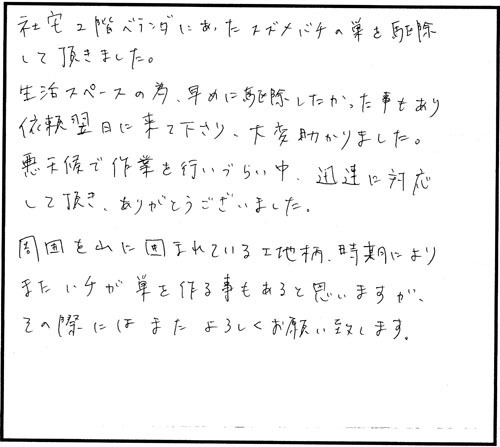 社宅2階ベランダにあったスズメバチの巣を駆除
して頂きました。
生活スペースの為、早めに駆除したかった事もあり
依頼翌日に来て下さり、大変助かりました。
悪天候で作業を行いづらい中、迅速に対応
して頂き、ありがとうございました。
周囲を山に囲まれている土地柄、時期により
またハチが巣を作る事もあると思いますが、
その際にはまたよろしくお願い致します。